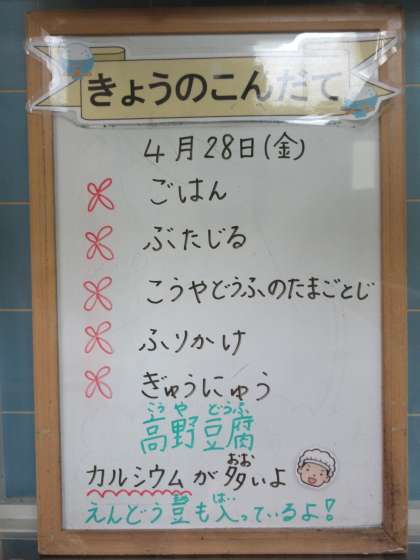 きょうのこんだて
4月28日(金)
ごはん
ぶたじる
こうやどうふのたまごとじ
ふりかけ
ぎゅうにゅう
こうや どうふ
高野豆腐
おお
カルシウムが多いよ
まめ はい
えんどう豆も入っているよ!